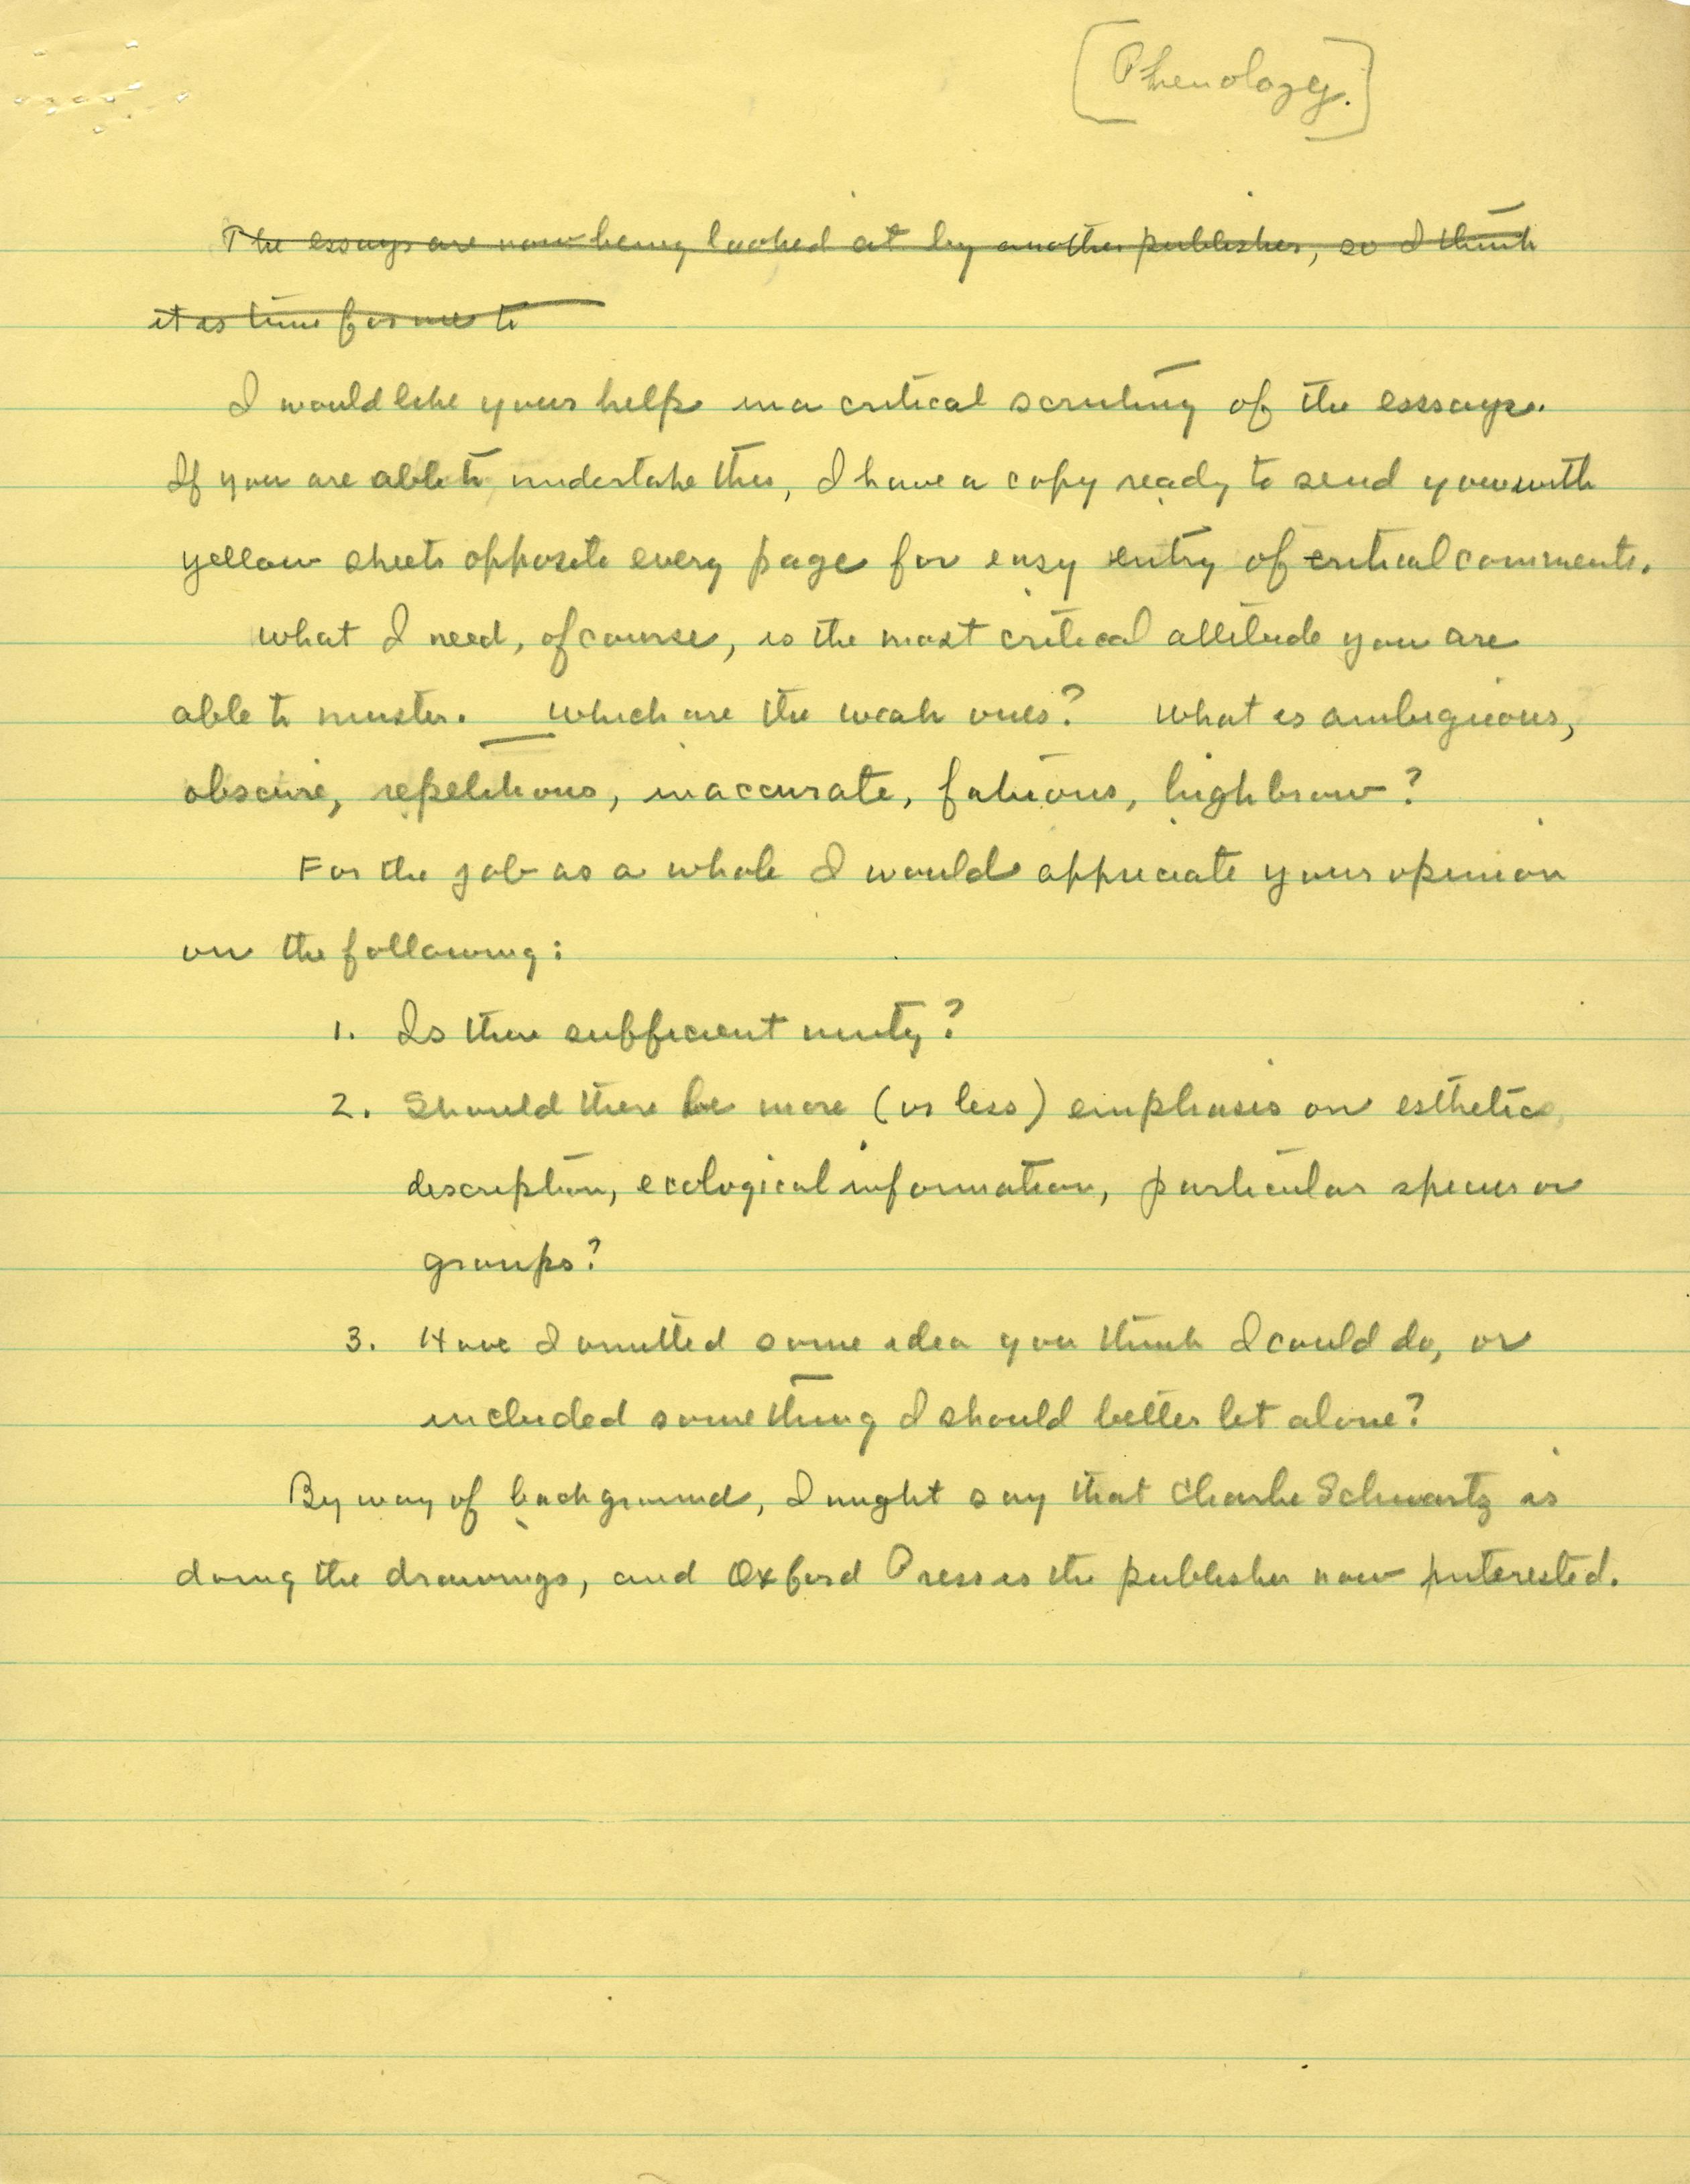 [Phenology.]
The essays are now being looked at by another publisher, so I think
it is time for me to
I would like your help in a critical scrutiny of the esssays.
If you are able to undertake this, I have a copy ready to send you with
yellow sheets opposite every page for easy entry of critical comments.
What I need, of course, is the most critical attitude you are
able to muster. Which are the weak ones? What is ambiguous,
obscure, repetitious, inaccurate, fatuous, highbrow?
For the job as a whole I would appreciate your opinion
on the following:
1. Is there sufficient unity?
2. Should there be more (or less) emphasis on esthetics,
description, ecological information, particular species or
groups?
3. Have I omitted some idea you think I could do, or
included something I should better let alone?
By way of background, I might say that Charlie Schwartz is
doing the drawings, and Oxford Press is the publisher now interested.